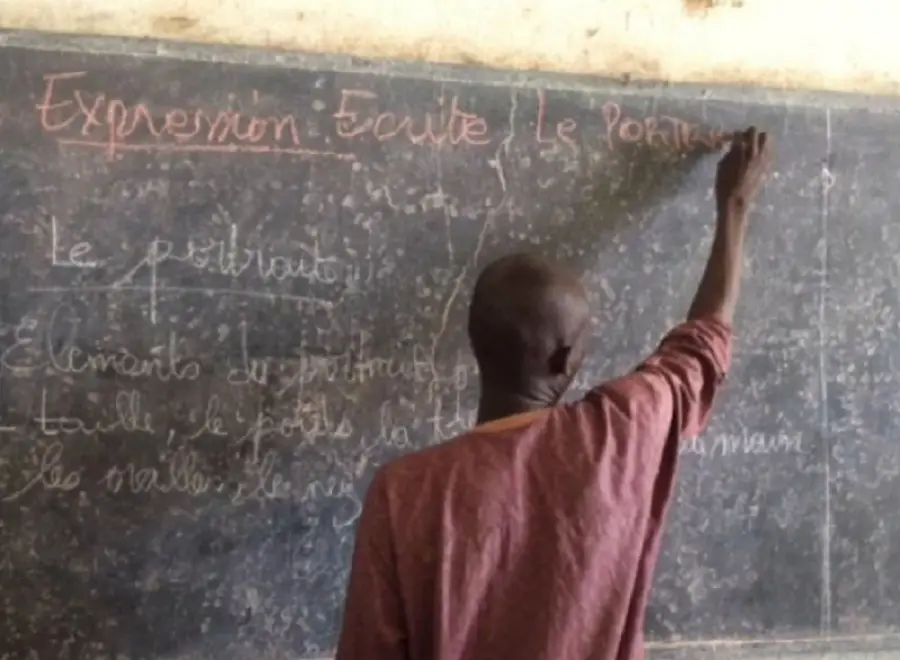 Expression Ecrite Le PORTRAIT
Le portrait
Elements du portrait
- taille, le poids, la main
les oreilles, le nez